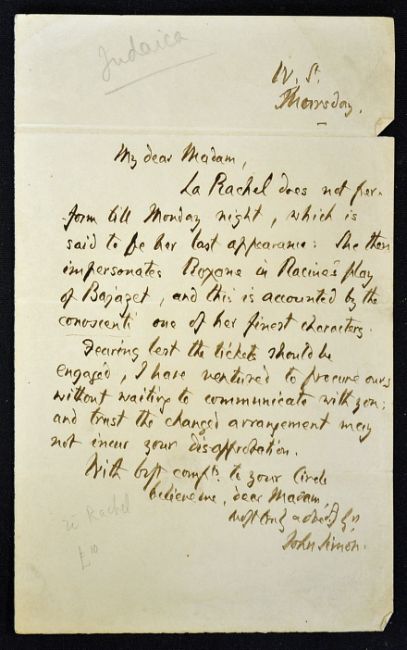 Judaica
W. St.
Thursday.
My dear Madam,
La Rachel does not per-
form till Monday night, which is
said to be her last appearance: She then
impersonates Roxane in Racine's play
of Bajazet, and this is accounted by the
conoscenti one of her finest characters.
Fearing lest the tickets should be
engaged, I have ventured to procure ours
without waiting to communicate with you:
and trust the changed arrangement may
not incur your disapprobation.
With best compts. to your Circle
believe me, dear Madam,
most
John Simon.
Rachel
£10